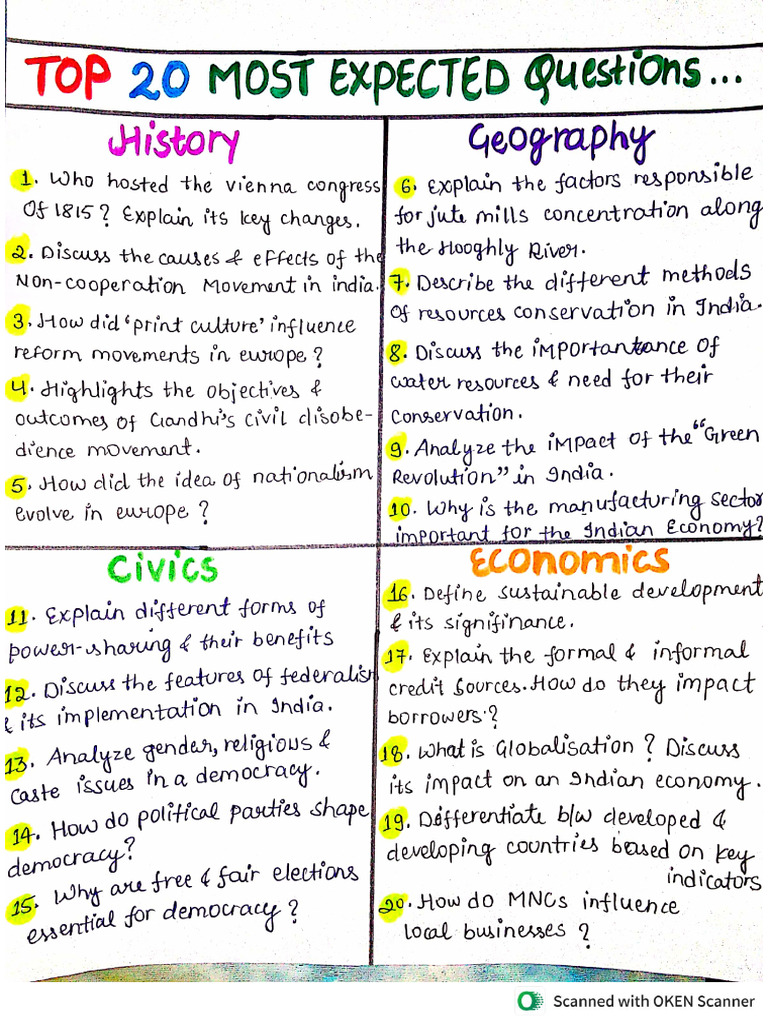 TOP 20 MOST EXPECTED Questions...
History
1. Who hosted the vienna congress
Of 1815? Explain its key changes.
2. Discuss the causes & effects of the
Non-cooperation Movement in india.
3. How did 'print culture' influence
reform movements in europe?
4. Highlights the objectives &
outcomes of Gandhi's civil disobe-
dience movement.
5. How did the idea of nationalism
evolve in europe?
Geography
6. Explain the factors responsible
for jute mills concentration along
the Hooghly River.
7. Describe the different methods
Of resources conservation in India.
8. Discuss the importantance of
water resources & need for their
conservation.
9. Analyze the impact of the "Green
Revolution" in India.
10. Why is the manufacturing sector
important for the Indian Economy?
Civics
11. Explain different forms of
power-sharing & their benefits
12. Discuss the features of federalism
& its implementation in India.
13. Analyze gender, religious &
caste issues in a democracy.
14. How do political parties shape
democracy?
15. Why are free & fair elections
essential for democracy?
Economics
16. Define sustainable development
& its signifinance.
17. Explain the formal & informal
credit sources. How do they impact
borrowers?
18. What is Globalisation? Discuss
its impact on an Indian economy.
19. Differentiate b/w developed &
developing countries based on key
indicators
20. How do MNCs influence
local businesses?
Scanned with OKEN Scanner